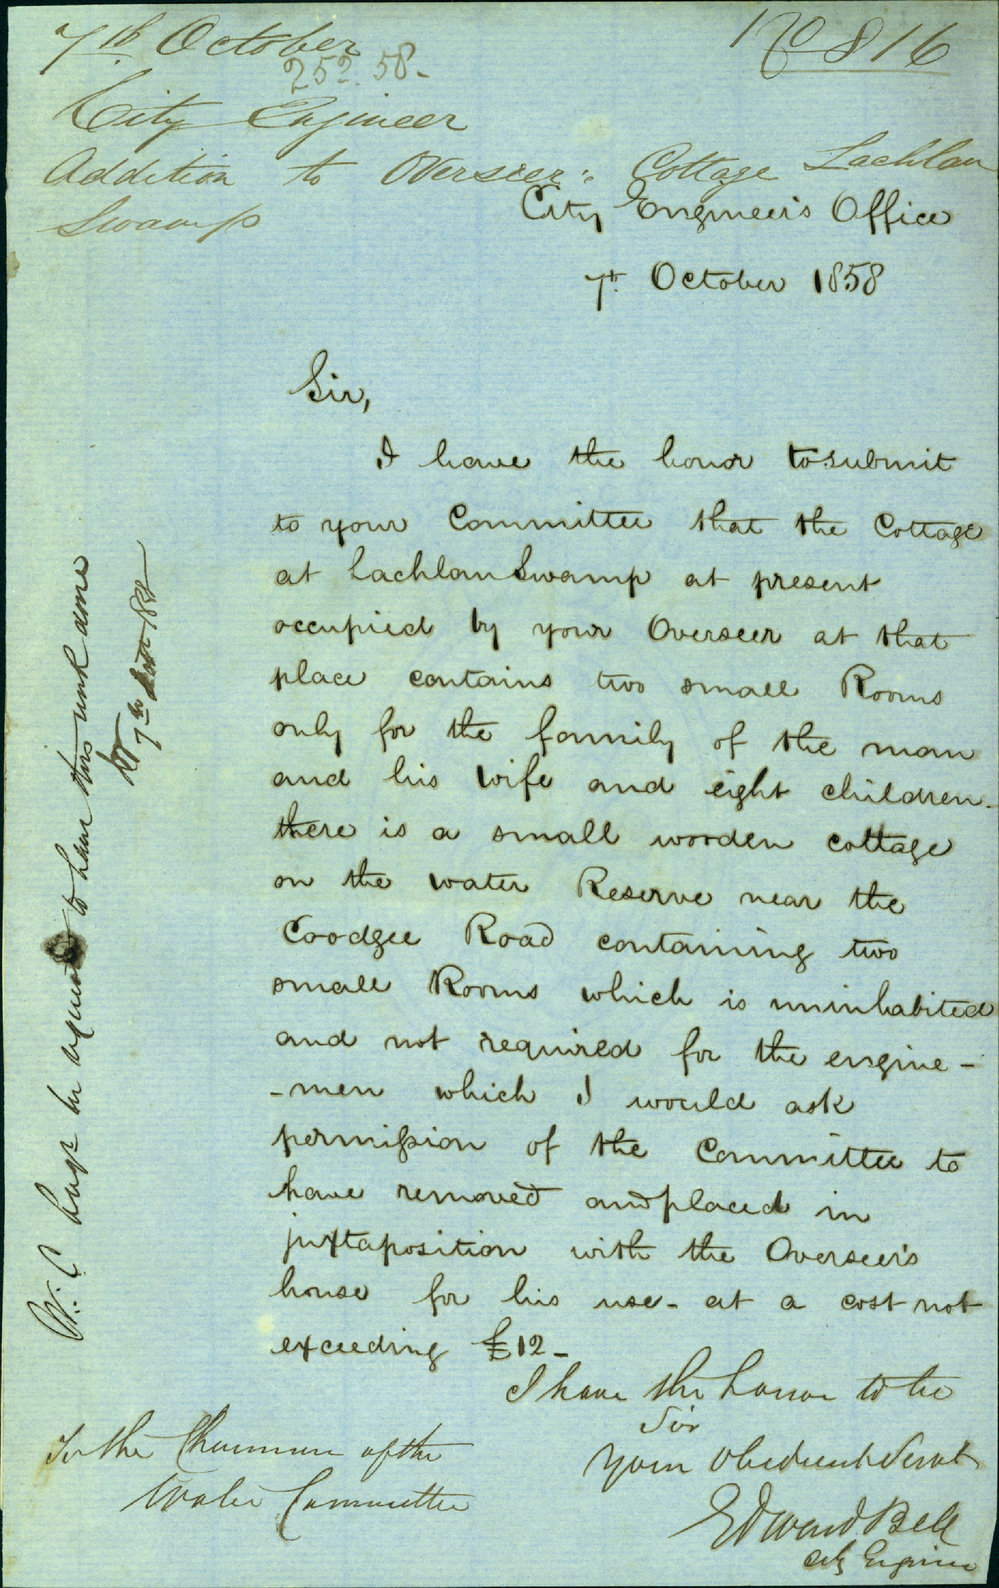 7th October
No 816
252. 58-
City Engineer
Addition to Overseer's Cottage Lachlan
Swamp
City Engineer's Office
7th October 1858
Sir,
I have the honor to submit
to your Committee that the Cottage
at Lachlan Swamp at present
occupied by your Overseer at that
place contains two small Rooms
only for the family of the man
and his wife and eight children-
there is a small wooden cottage
on the water Reserve near the
Coodgee Road containing two
small Rooms which is uninhabited
and not required for the engine-
-men which I would ask
permission of the Committee to
have removed and placed in
juxtaposition with the Overseer's
house for his use- at a cost not
exceeding £12-
I have the honor to be
Sir
Your Obedient Servt
Edward Bell
City Engineer
To the Chairman of the
Water Committee
W. C. be requested to have this work done
7th